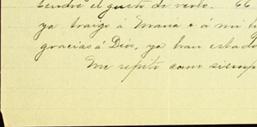 tendré el gusto de verlo. 66
ya traigo á Maria + á mi
gracias á Dios, ya han estado
Me repito como siemp